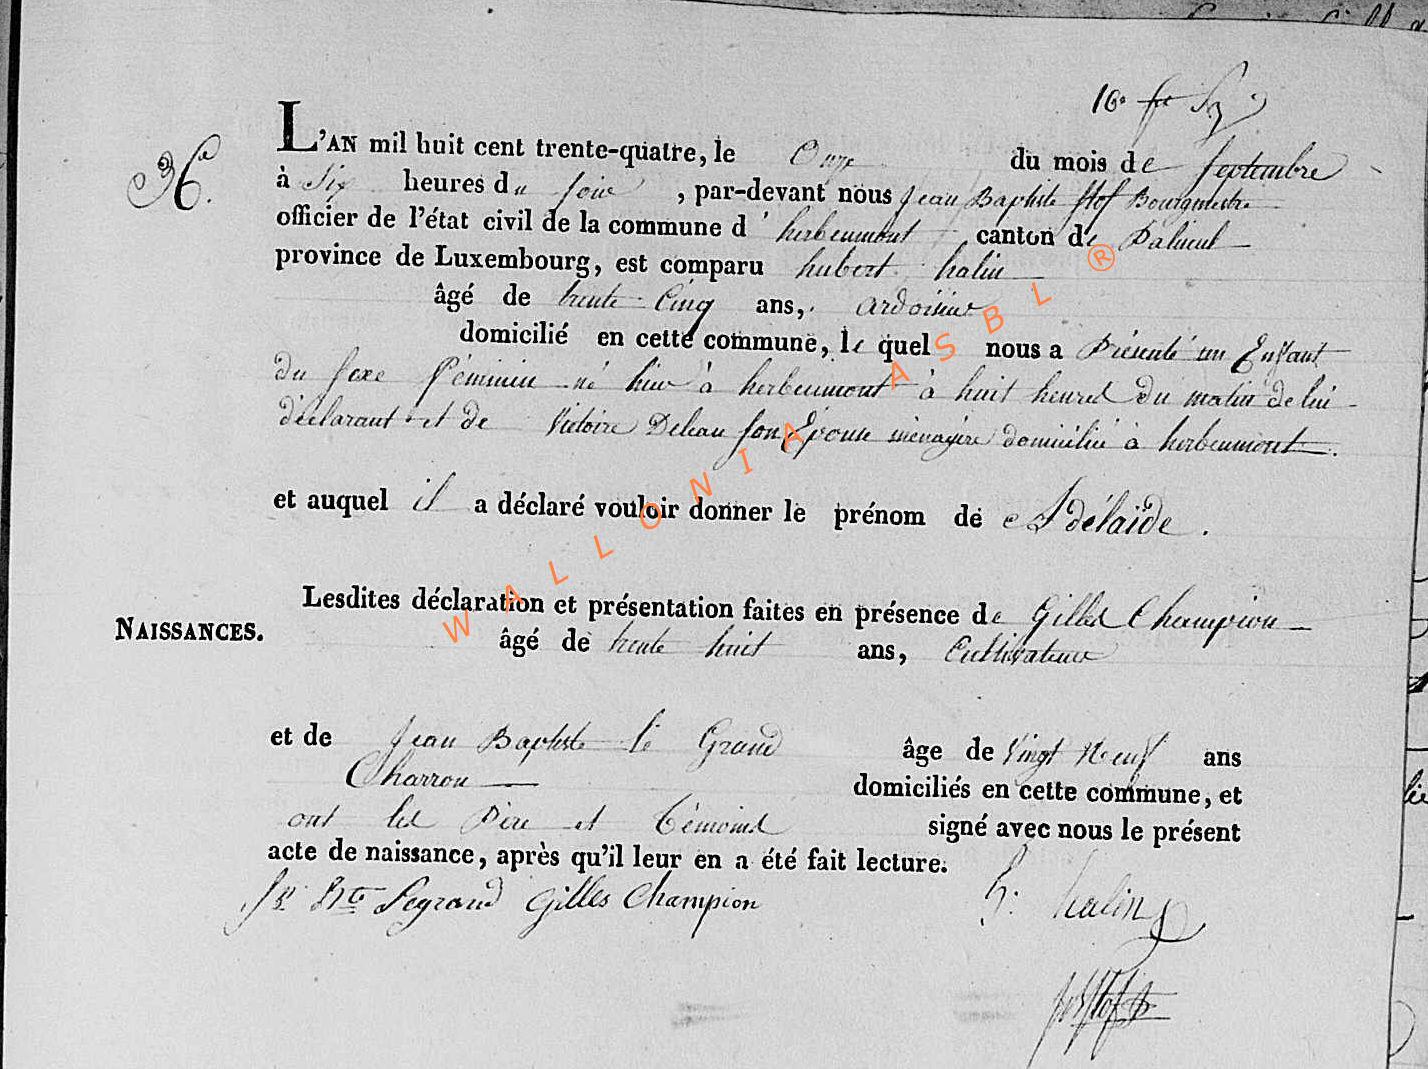 36.e
L'AN mil huit cent trente-quatre, le Onze du mois de Septembre
à Six heures du soir, par-devant nous Jean Baptiste Stof Bourgmestre
officier de l'état civil de la commune d'herbeumont canton de Paliseul
province de Luxembourg, est comparu hubert halin
âgé de trente Cinq ans, ardoisier
domicilié en cette commune, le quel nous a Présenté un Enfant
du sexe féminin né hier à herbeumont à huit heures du matin de lui
déclarant et de Victoire Deleau son Epouse ménagère domiciliée à herbeumont.
et auquel il a déclaré vouloir donner le prénom de Adélaïde.
Lesdites déclaration et présentation faites en présence de Gilles Champion
NAISSANCES.
âgé de trente huit ans, Cultivateur
et de Jean Baptiste le Grand âge de Vingt Neuf ans
Charron domiciliés en cette commune, et
ont les Père et Témoins signé avec nous le présent
acte de naissance, après qu'il leur en a été fait lecture.
Jn Bte Legrand Gilles Champion h. halin
WALLONIA ASBL ®